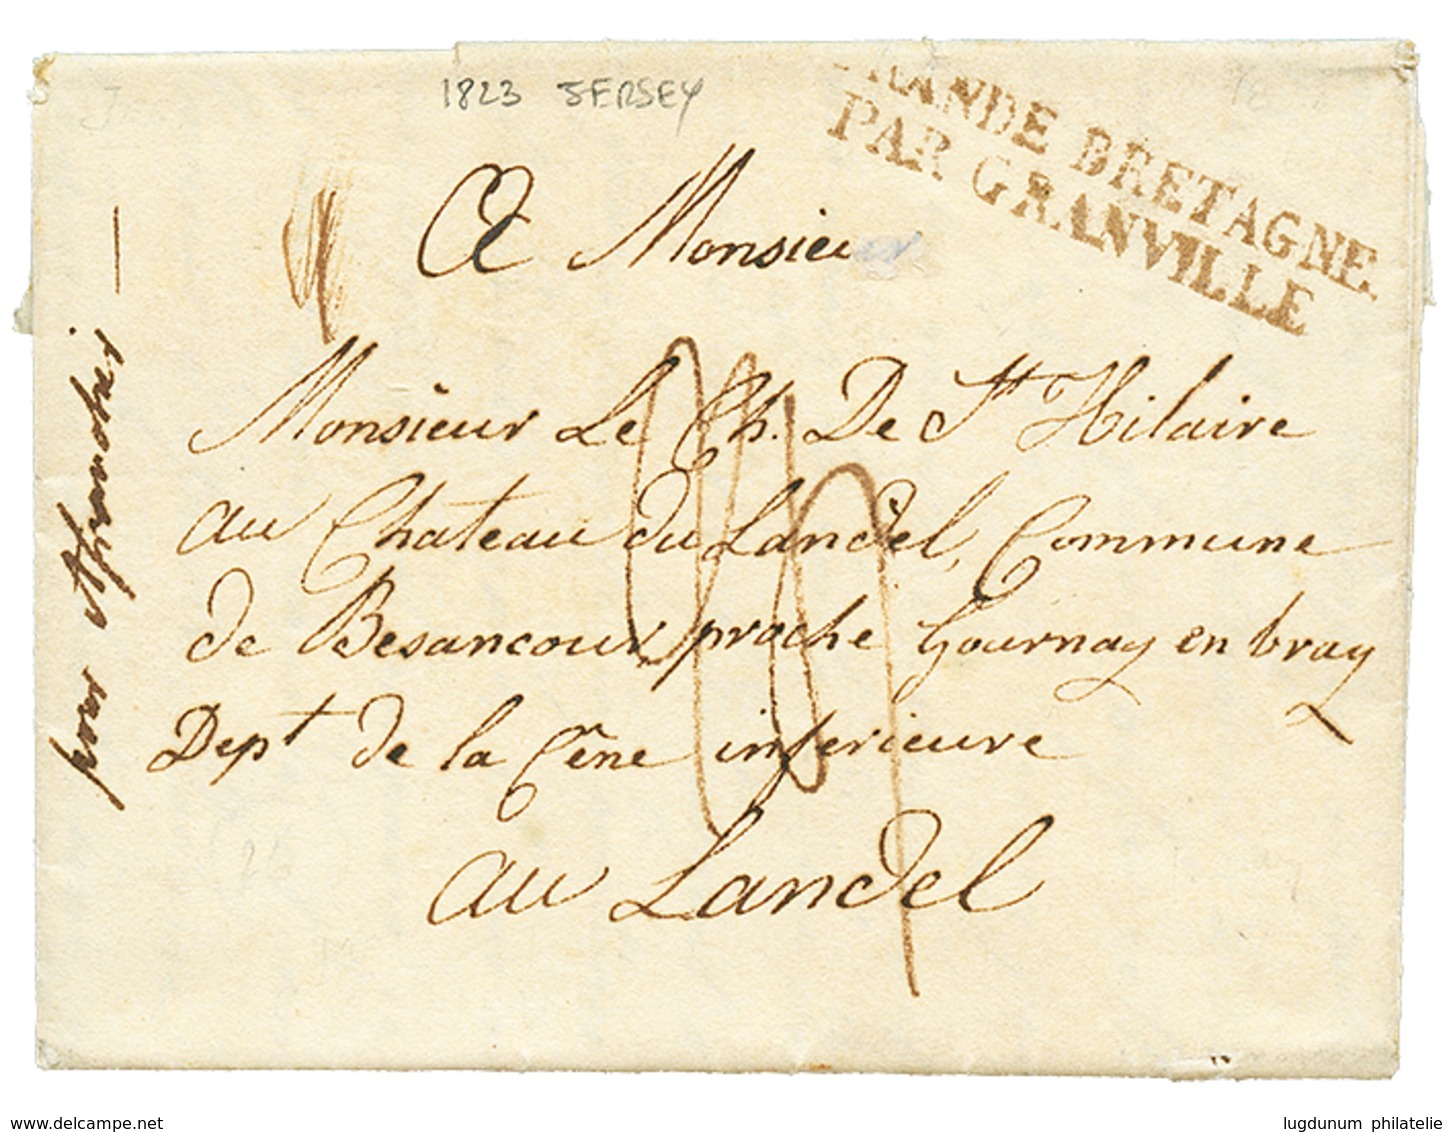 1823 JERSEY
GRANDE BRETAGNE
PAR GRANVILLE
A Monsieur
Monsieur Le Ch. De St Hilaire
au Chateau du Landel, Commune
de Besancour proche Gournay en bray
Dept de la Cêne inferieure
au Landel
pour affranchir
www.delcampe.net
lugdunum philatelie